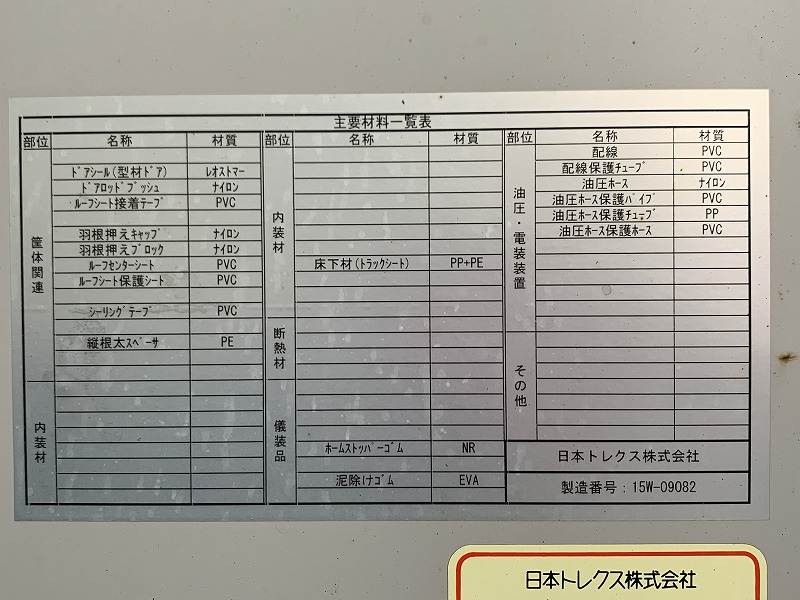 主要材料一覧表
部位 名称 材質
筐体関連
ﾄﾞｱｼｰﾙ(型材ﾄﾞｱ) ﾚｵｽﾄﾏｰ
ﾄﾞｱﾛｯﾄﾞﾌﾞｯｼｭ ﾅｲﾛﾝ
ﾙｰﾌｼｰﾄ接着ﾃｰﾌﾟ PVC
羽根押えｷｬｯﾌﾟ ﾅｲﾛﾝ
羽根押えﾌﾞﾛｯｸ ﾅｲﾛﾝ
ﾙｰﾌｾﾝﾀｰｼｰﾄ PVC
ﾙｰﾌｼｰﾄ保護ｼｰﾄ PVC
ｼｰﾘﾝｸﾞﾃｰﾌﾟ PVC
縦根太ｽﾍﾟｰｻ PE
内装材
部位 名称 材質
内装材
床下材(ﾄﾗｯｸｼｰﾄ) PP+PE
断熱材
儀装品
ﾎｰﾑｽﾄｯﾊﾟｰｺﾞﾑ NR
泥除けｺﾞﾑ EVA
部位 名称 材質
油圧・電装装置
配線 PVC
配線保護ﾁｭｰﾌﾞ PVC
油圧ﾎｰｽ ﾅｲﾛﾝ
油圧ﾎｰｽ保護ﾊﾟｲﾌﾟ PVC
油圧ﾎｰｽ保護ﾁｭｰﾌﾞ PP
油圧ﾎｰｽ保護ﾎｰｽ PVC
その他
日本トレクス株式会社
製造番号:15W-09082
日本トレクス株式会社